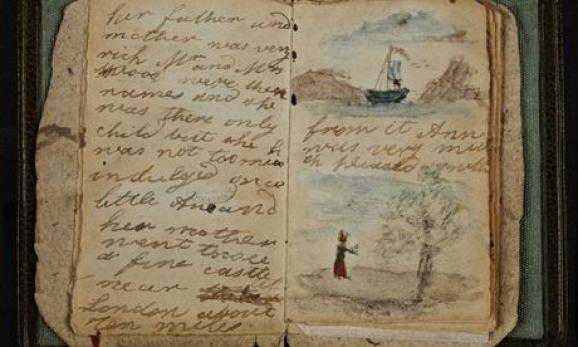 her father and
mother was very
rich Mr and Mrs
Wood were there
names and she
was there only
child but she h
was not too muc
indulged once
little Ane and
her mother
went to see
a fine castle
near
London about
ten miles
from it Ann
was very mu
ch pleased with